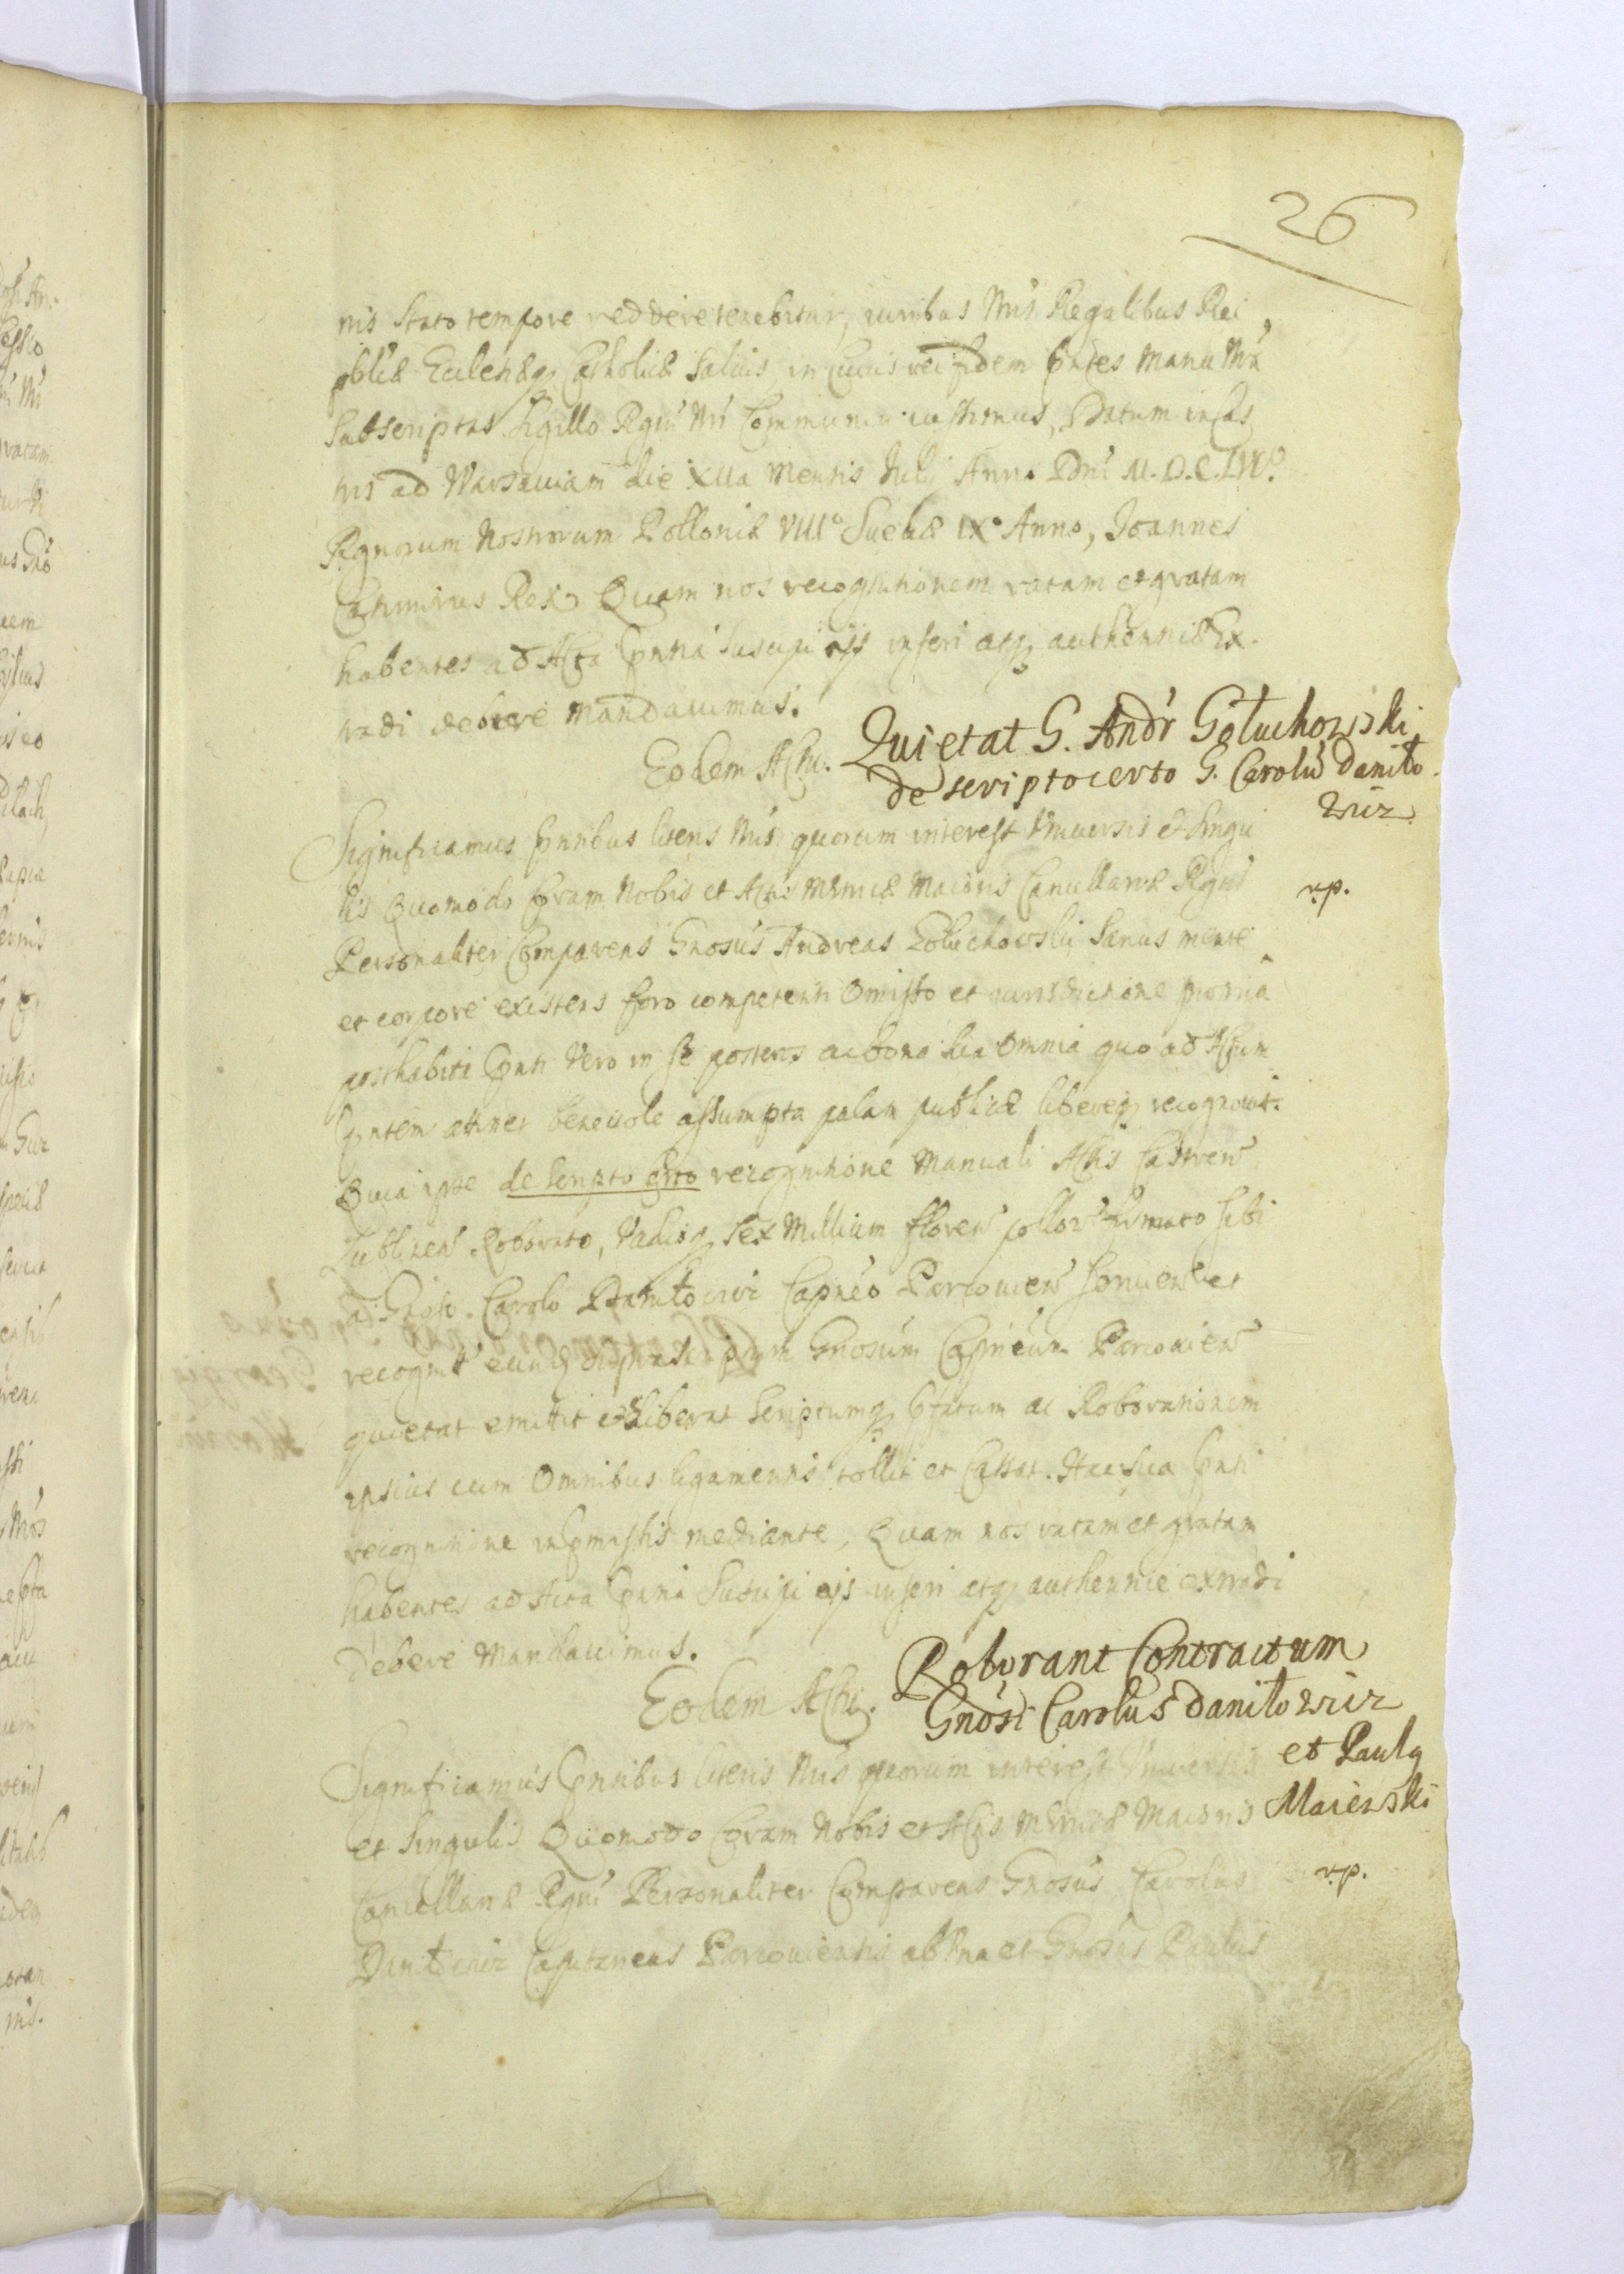 26
nis Stato tempore reddere tenebitur, iuribus Nris Regalibus Rei
pblicæ Ecclesiæq Catholicæ Saluis, in Cuius rei fidem pntes Manu Nra
Subscriptas Sigillo Regni Nri Communiri iussimus, Datum in Cas
tris ad Warsauiam die XIIa Mensis July Anno Dni M.D.C.LVI°
Regnorum Nostrorum Polloniæ VIII° Sueciæ IX° Anno, Joannes
Casimirus Rex. Quam nos recognitionem ratam et gratam
habentes ad Acta pntia suscipi iss inseri atq authenticæ Ex-
tradi debere mandauimus.
Eodem Actu.
Quietat G. Andr Gołuchowski
de scripto certo G. Carolu Daniło
wicz.
r.p.
Significamus pntibus literis Nris quorum interest Vniuersis et Singu
lis Quomodo Coram Nobis et Actis Metricæ Maioris Cancellariæ Regni
Personaliter Comparens Gnosus Andreas Gołuchowski Sanus mente
et corpore existens foro competenti Omisso et iurisdictione propria
posthabita pnti Vero in se posteros ac bona sua Omnia quo ad Actum
pntem attinet beneuole assumpta palam publicæ libereq recognouit.
Quia ipse de Scripto certo recognitione Manuali Actis Castren
Lublinen Roborato, Vadioq Sex Millium floren pollon firmato Sibi
a Gnoso Carolo Daniłowicz Capneo Parcouien Seruien et
recognit eundq suprascriptum Gnosum Capneum Parcouien
quietat emittit et liberat Scriptumq pfatum ac Roborationem
ipsius cum Omnibus ligamentis tollit et Cassat. Hac sua pnti
recognitione in pmissis mediante, Quam nos ratam et gratam
habentes ad Acta pntia Suscipi ijs inseri atq authentice extradi
debere Mandauimus.
Eodem Actu.
Roborant Contractum
Gnosi Carolus Daniłowicz
et Paulq
Maiewski
r.p.
Significamus pntibus literis Nris quorum interest Vniuersis
et Singulis Quomodo Coram Nobis et Actis Metricæ Maioris
Cancellariæ Regni Personaliter Comparens Gnosus Carolus
Daniłowicz Capitaneus Parcouiensis ab Vna et Gnosus Paulus